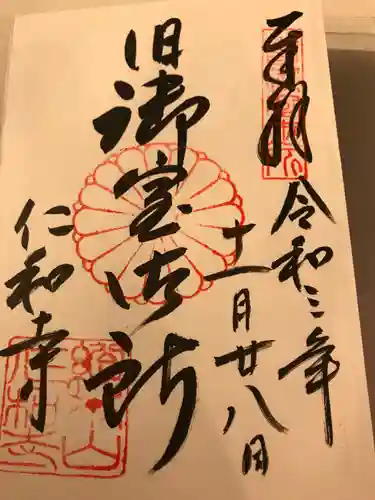 奉拝
令和三年
十一月廿八日
旧御室御所
仁和寺